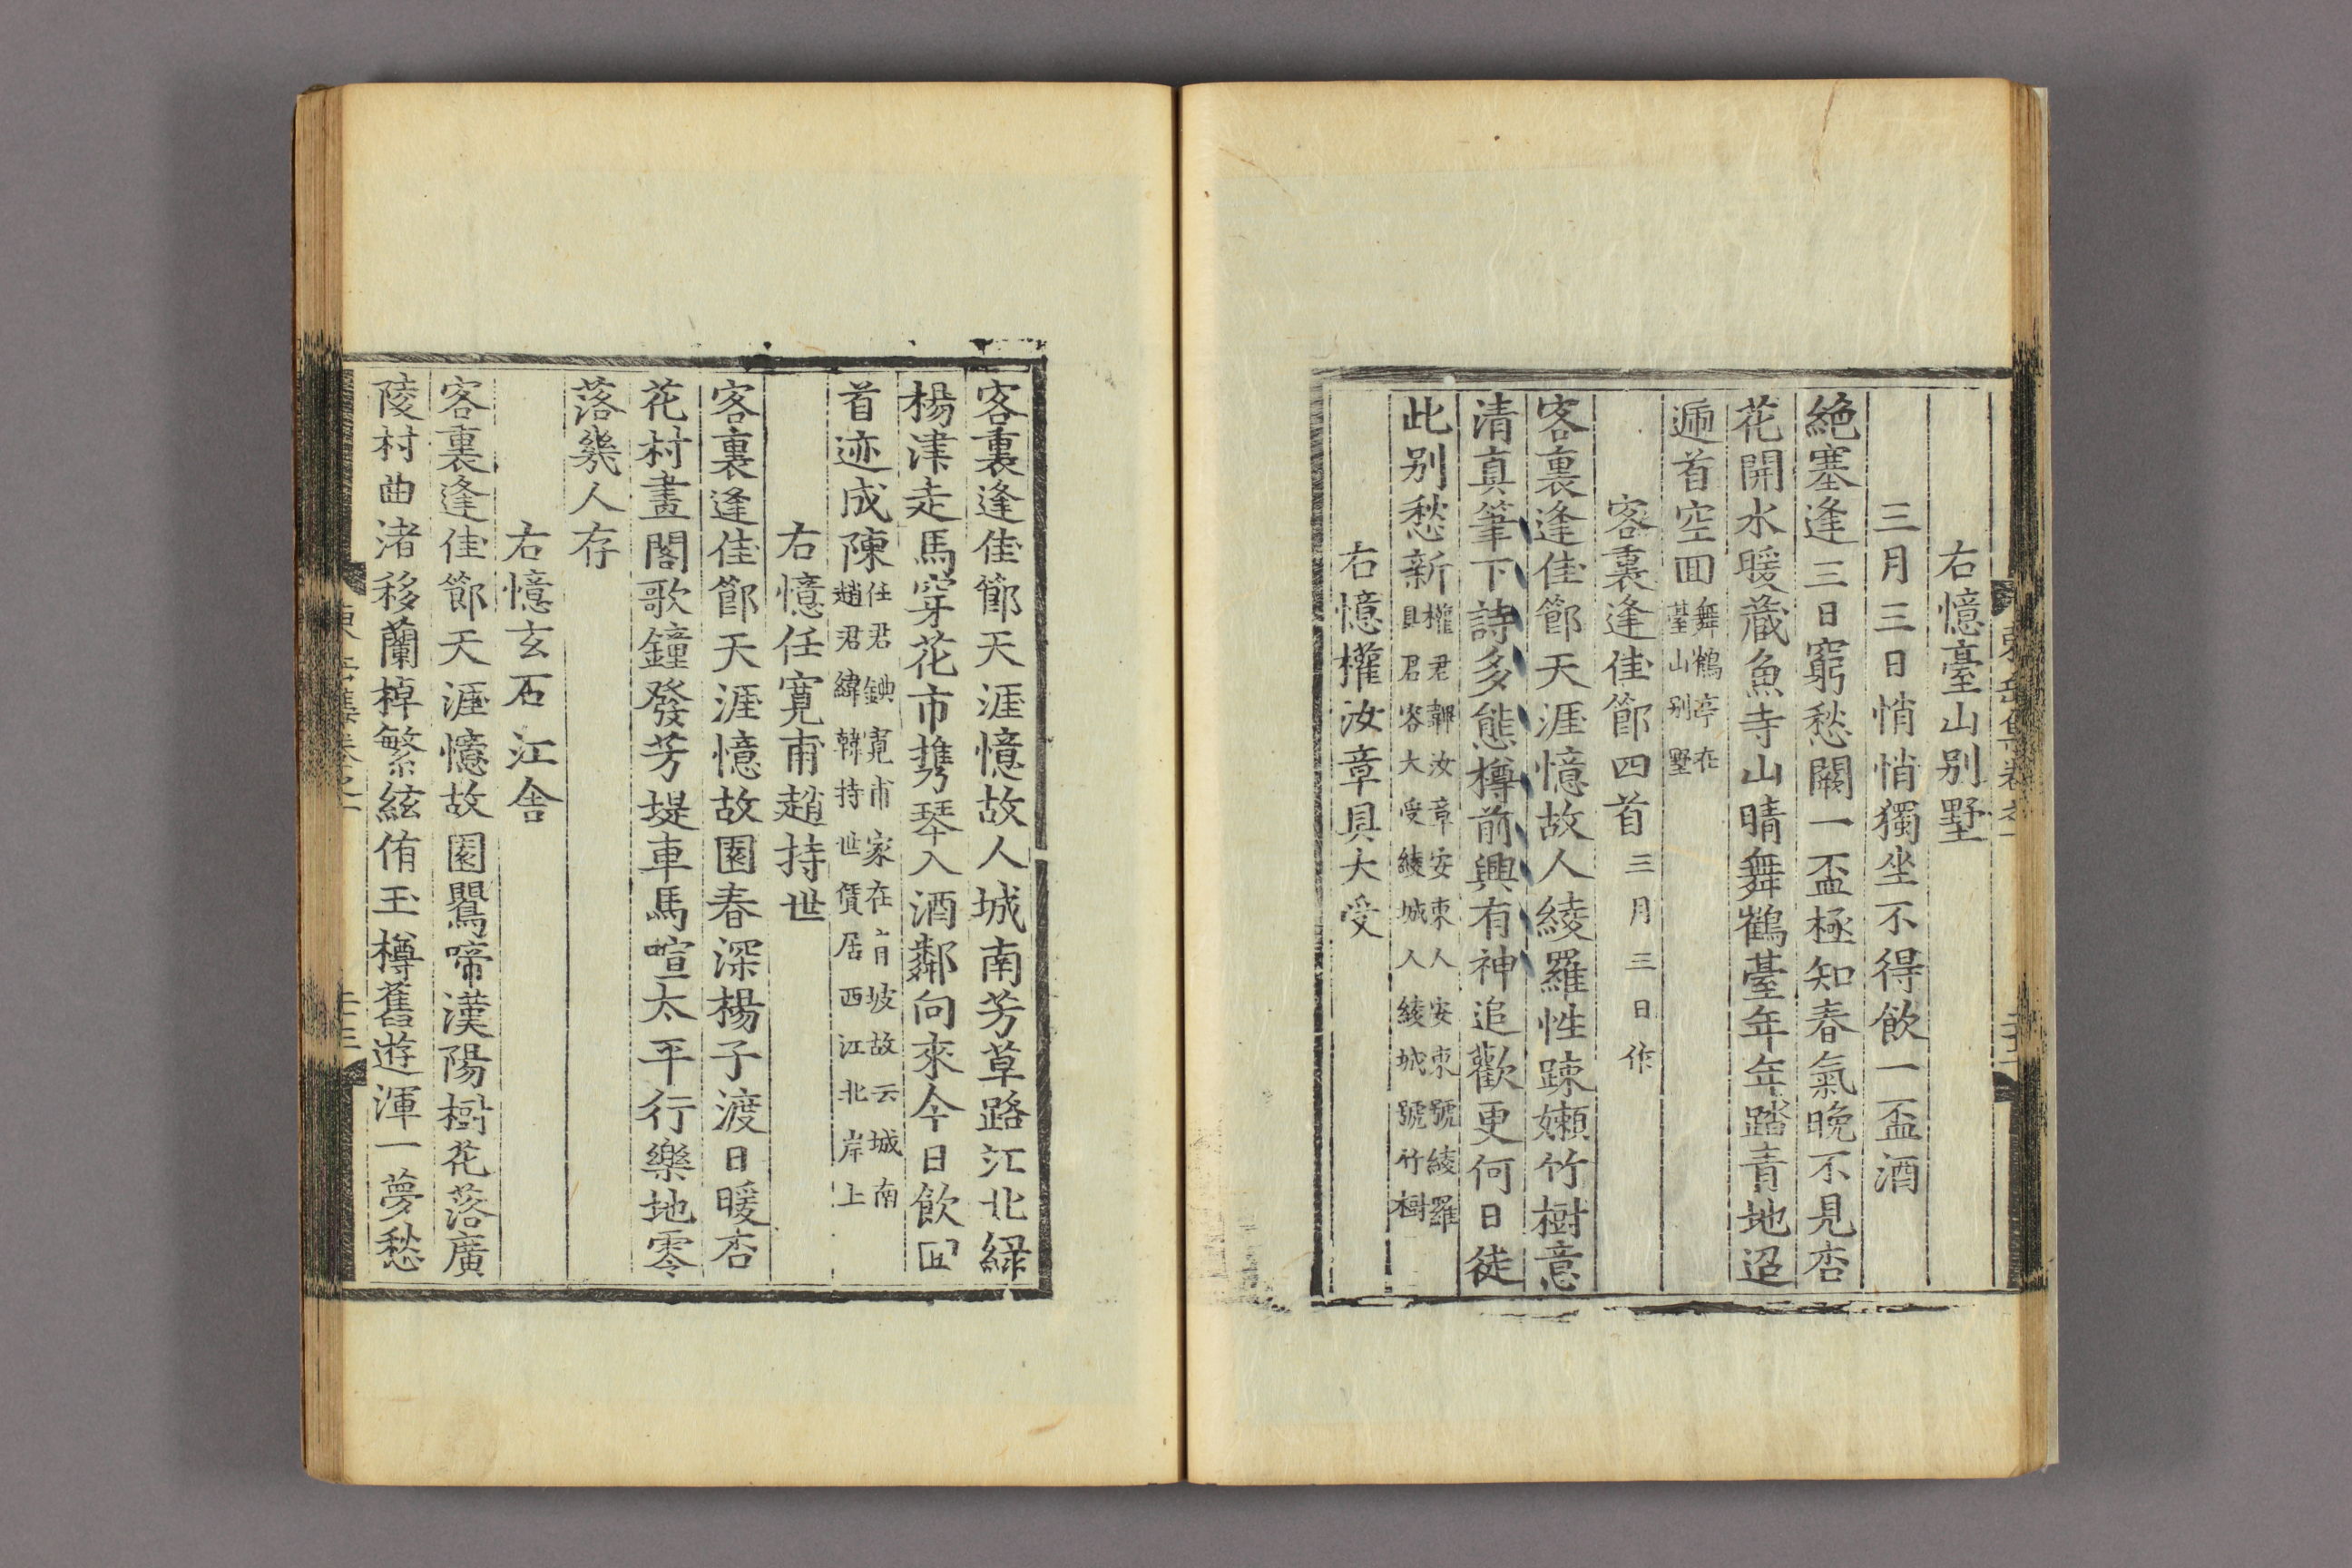 右憶臺山別墅
三月三日悄悄獨坐不得飲一盃酒
絶塞逢三日窮愁闕一盃極知春氣晩不見杏
花開水暖藏魚寺山晴舞鶴臺年年踏靑地迢
逓首空囬舞鶴亭在臺山別墅
客裏逢佳節四首三月三日作
客裏逢佳節天涯憶故人綾羅性踈嬾竹樹意
清真筆下詩多態樽前興有神追歡更何日徒
此別愁新權君韠汝章安東人安東號綾羅具君容大受綾城人綾城號竹樹
右憶權汝章具大受
客裏逢佳節天涯憶故人城南芳草路江北緑
楊津走馬穿花市携琴入酒鄰向來今日飮囬
首迹成陳任君錪寛甫家在靑坡故云城南趙君緯韓持世賃居西江北岸上
右憶任寛甫趙持世
客裏逢佳節天涯憶故園春深楊子渡日暖杏
花村畫閣歌鐘發芳堤車馬喧太平行樂地零
落幾人存
右憶玄石江舍
客裏逢佳節天涯憶故園鸎啼漢陽樹花落廣
陵村曲渚移蘭棹繁絃侑玉樽舊遊渾一夢愁